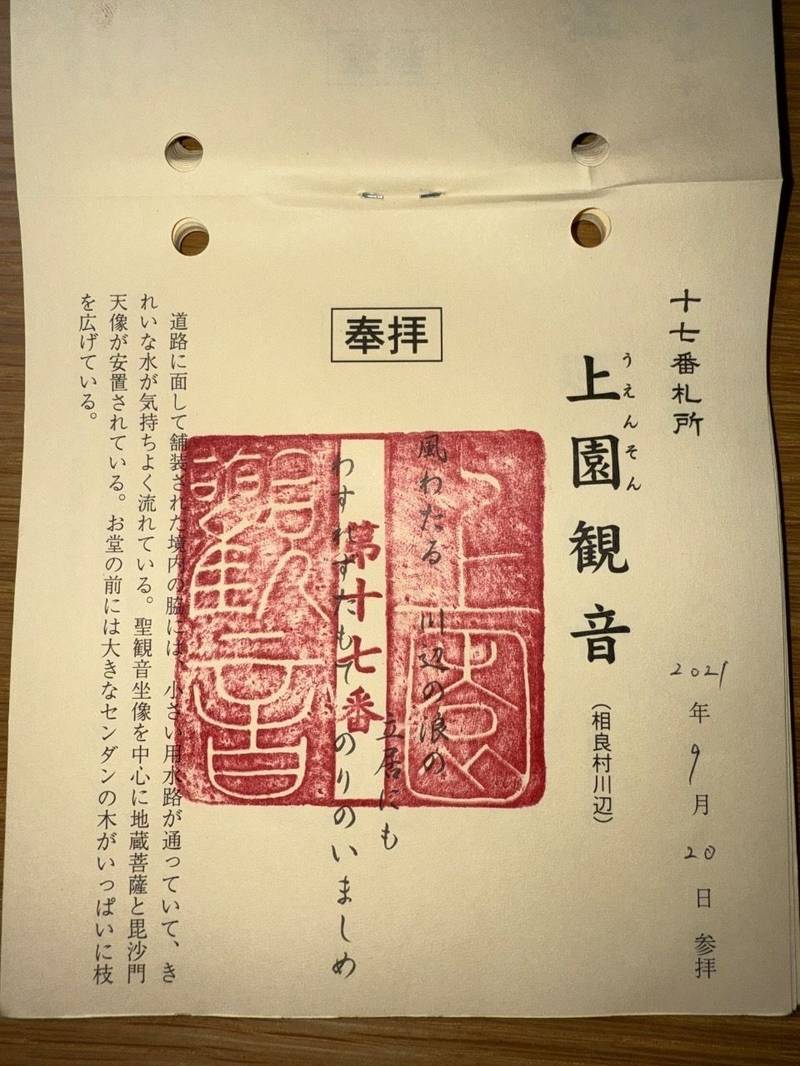 十七番札所
上園観音
うえんそん
(相良村川辺)
2021年9月20日 参拝
奉拝
風わたる 川辺の浪の
立居にも
わすれずたもて のりのいましめ
上園
第十七番
観音
道路に面して舗装された境内の脇には、小さい用水路が通っていて、き
れいな水が気持ちよく流れている。聖観音坐像を中心に地蔵菩薩と毘沙門
天像が安置されている。お堂の前には大きなセンダンの木がいっぱいに枝
を広げている。